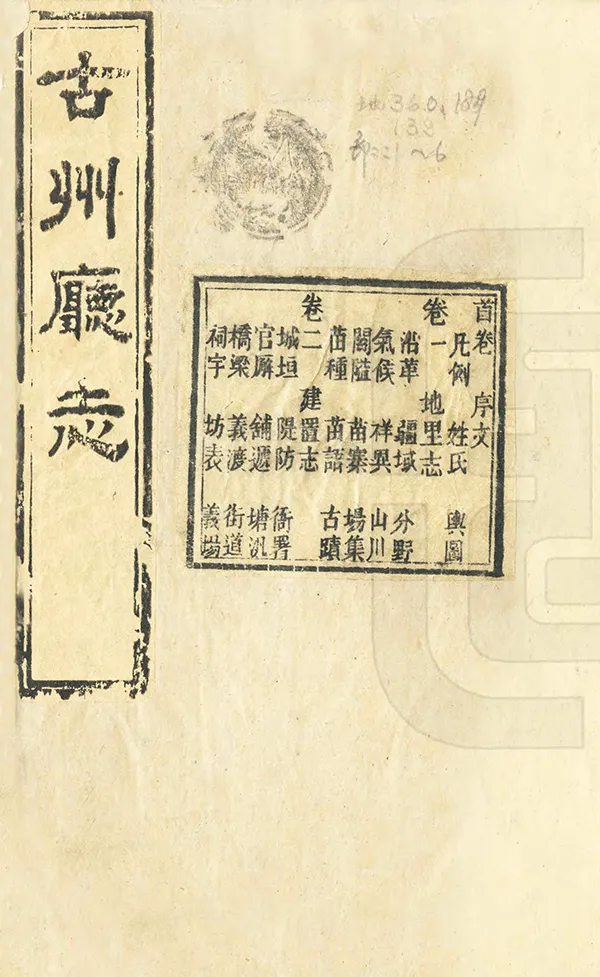 古州廳志
地360.189
132
首卷 序文
凡例 姓氏 輿圖
卷一 地里志
沿革 疆域 分野
氣候 祥異 山川
關隘 苗寨 場集
苗種 苗語 古蹟
卷二 建置志
城垣 隄防 衙署
官廨 舖遞 塘汛
橋梁 義渡 街道
祠宇 坊表 義